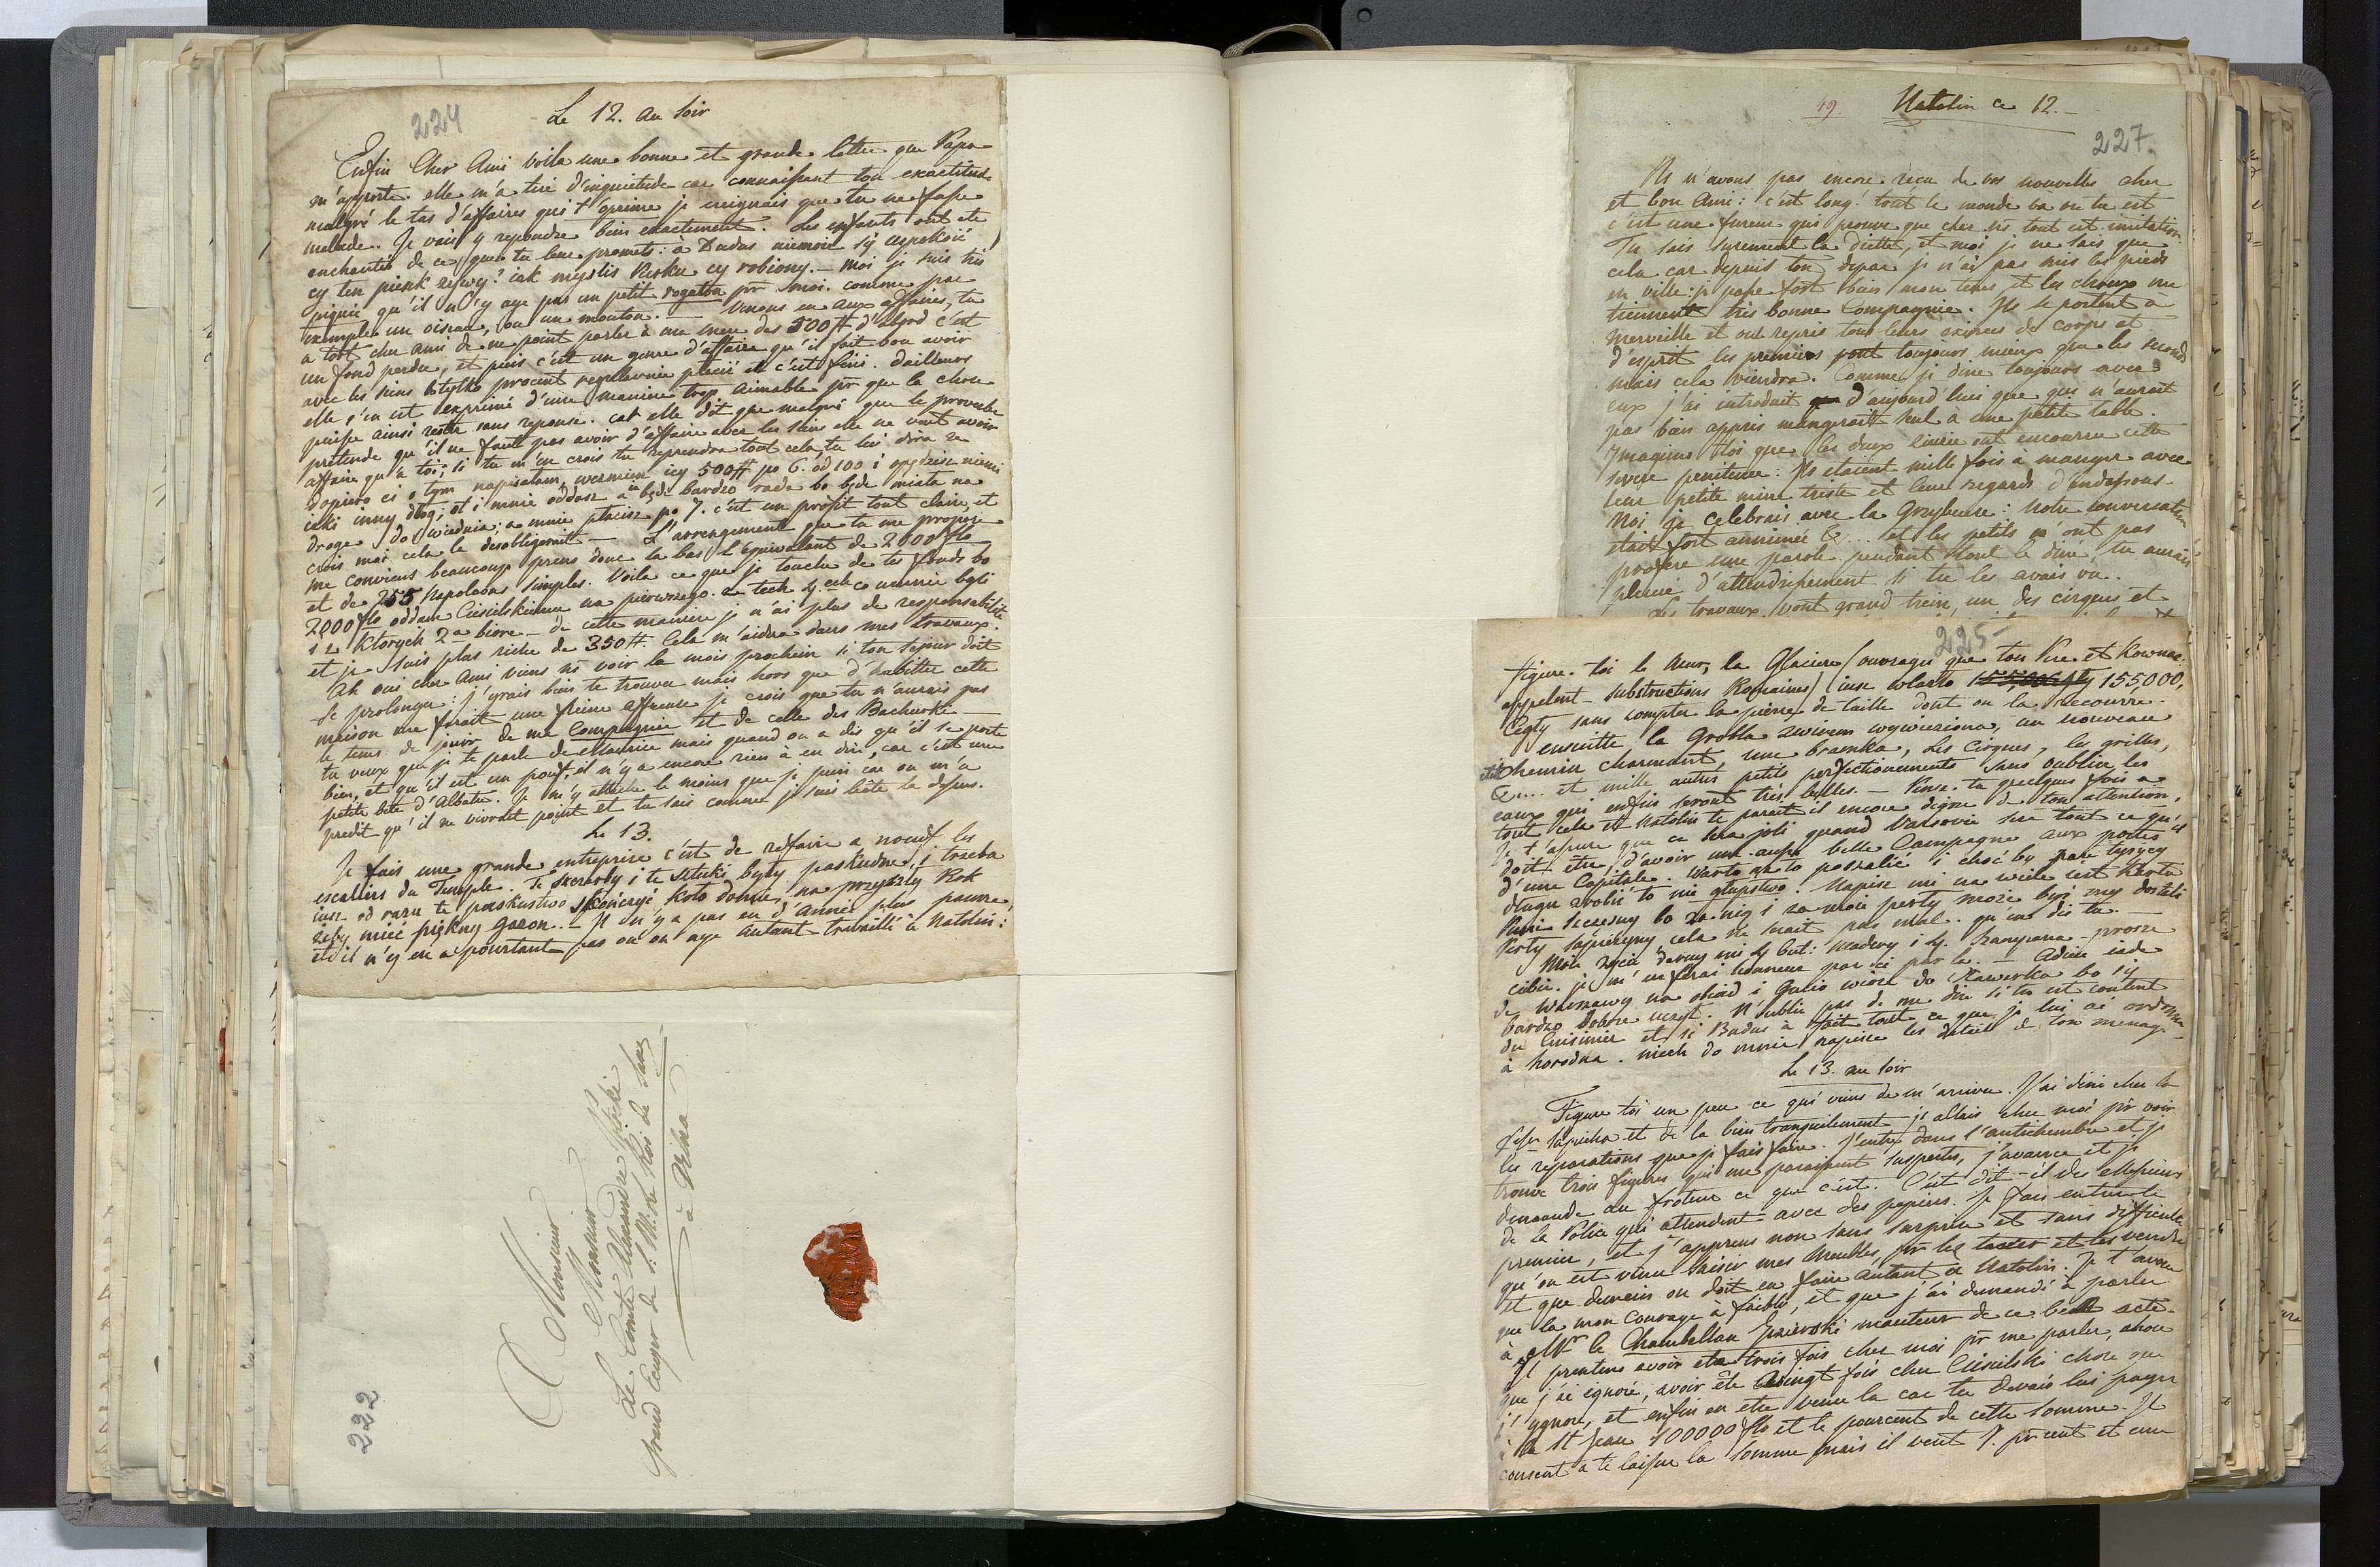 224
Le 12. au soir
Enfin Cher Ami voila une bonne et grande lettre que Papa
m'apporte. elle m'a tiré d'inquietude car connaissant ton exactitude
malgré le tas d'affaires qui t'oprime je creignais que tu ne fusse
malade. Je vais y repondre bien exactement. Les enfants ont eté
enchantés de ce que tu leur promets: à Dadus niemoie się uspokoić
cy ten piesek zywy? iak myslis Piesku cy robiony. — Moi je suis très
piquée qu'il n'y aye pas un petit rogaton pr moi. comme par
exemple un oiseau, ou un mouton. — Venons en aux affaires, tu
a tort cher ami de ne point parler à ma mere des 500 # d'abord c'est
un fond perdu, et puis c'est un genre d'affaire qu'il fait bon avoir
avec les siens bo tylko procent regularnie płacić et c'est fini. d'ailleurs
elle s'en est exprimé d'une maniere trop aimable pr que la chose
puisse ainsi rester sans reponse. car elle dit que malgré que le proverbe
pretende qu'il ne faut pas avoir d'affaire avec les siens elle ne veut avoir
affaire qu'à toi; si tu m'en crois tu reprendra tout cela, tu lui dira ze
dopiero ci o tym napisałam, wezmiesz icy 500 # po 6. od 100 i
inny dług; et i mnie oddasz a będę bardzo rada bo będę miała na
droge do Wiednia; a mnie płacisz po 7. c'est un profit tout claire, et
crois moi cela la desobligerait — L'arrengement que tu me propose
me conviens beaucoup prens donc la bas l'équivalent de 2000 flo
et de 255 Napoleons simples. Voila ce que je touche de tes fonds bo
2000 flo oddam Ciesielskiemu na pierwszego. z tech 4.ech co u mnie byli
i z ktorych 2a biore — de cette maniere je n'ai plus de responsabilité
et je suis plus riche de 350 #. Cela m'aidra dans mes travaux.
Ah oui cher Ami viens ns voir le mois prochain si ton sejour doit
se prolonger: j'yrais bien te trouver mais hors que d'habiter cette
maison me ferait une peine affreuse je crois que tu n'aurais pas
le tems de jouir de ma Compagnie et de celle des Bachurki —
tu veux que je te parle de Maurice mais quand on a dis qu'il se porte
bien, et qu'il est un pouf, il n'y a encore rien à en dire, car c'est une
petite bete d'Albatre. Je m'y attache le moins que je puis car on m'a
predit qu'il ne vivrait point et tu sais comme je suis bête la dessus.
Le 13.
Je fais une grande entreprise c'est de refaire a noeuf les
escaliers du Temple. Te skarpy i te sztuki były paskudne, i trzeba
iusz od razu te paskustwo skończyć koło domu. na przyszły Rok
zeby mieć piękny gazon. — Il n'y a pas eu d'Année plus pauvre,
et il n'y en a pourtant pas ou on aye autant travaillé à Natolin:
A Monsieur
Monsieur
Le Comte Alexandre Potocki
grand Ecuyer de S. M. le Roi de Saxe
à Dresde
222
49. Natolin ce 12.
227.
Ns n'avons pas encore recu de vos nouvelles cher
et bon Ami: c'est long. tout le monde va ou tu est
c'est une fureur qui prouve que chez ns tout est imitation.
Tu sais surement la Diette, et moi je ne sais que
cela car depuis ton depar je n'ai pas mis les pieds
en ville: je passe fort bien mon tems et les choux me
tiennent très bonne Compagnie. Ils se portent a
merveille et ont repris tous leurs exirces de corps et
d'esprit les premiers vont toujours mieux que les seconds
mais cela viendra. Comme je dine toujours avec
eux j'ai introduit d'aujourd'hui que qui n'aurait
pas bien appris mangerait seul à une petite table.
Ymagine toi que les deux ont encourru cette
severe penitence: Ils etaient mille fois à manger avec
leur petite mine triste et leur regards d'endessous.
Moi je celebrais avec la Grzybeuse: Notre conversation
était fort annimée &.... et les petits n'ont pas
profere une parole pendant tout le diné, tu aurais
pleuré d'attendrissement si tu les avais vu.
Les travaux vont grand train, un des cirques et
225
figure-toi le mur, la Glaciere (ouvrages que ton Pere et Kownac.
appelent substructions Romaines) iusz wlazło 155,000,
Cegły sans compter la pierre de taille dont on la recouvre.
ensuitte la Grotta zwirem wywieziona, un nouveau
chemin charmant, une bramka, Les Cirques, les grilles,
&.... et mille autres petits perfectionements sans oublier les
eaux qui enfin seront très belles. — Pense-tu quelques fois a
tout cela et Natolin te parait il encore digne de ton attention,
Je t'assure que ce sera joli quand Varsovie sera tout ce qu'il
doit être, d'avoir une aussi belle Campagne aux portes
d'une Capitale. Warto na to pozwalić i choć by parę tysięcy
długu zrobić to nie głupstwo. Napisz mi na wiele iest karta
Pani bo za nią i za moie perły może być zmy dostali
Perły Sapieżyny cela ne serait pas mal. qu'en dis tu —
Moie zycie daruy mi 4 but: Madery i 4. Szampana — prosze
ciebie. je m'en ferai honneur par ci par la. — Adieu iade
do Warszawy na obiad i Gucio wiose do Stawirka bo się
bardzo dobrze uczył. N'oublie pas de me dire si tu est content
du Cuisinier et si Badus à fait tout ce que je lui ai ordonné
à horodna. niech do mnie napisze les details de ton menage.
Le 13. au soir
Figure toi un peu ce qui viens de m'arriver. J'ai diné chez la
Psse Sapieha et de la bien tranquilement je allais chez moi pr voir
les reparations que je fais faire. J'entre dans l'antichambre et je
trouve trois figures qui me paraissent suspectes, j'avance et je
demande au froteur ce que c'est. C'est dit-il des Messieurs
de la Police qui attendent avec des papiers. Je fais entrer le
premier, et j'apprens non sans surprise et sans difficulté
qu'on est venu saisir mes meubles, pr les taxer et les vendre
et que demain on doit en faire autant à Natolin. Je t'avoue
que la mon courage à faibli, et que j'ai demandé à parler
à Mr le Chambellan Gzierski mauteur de ce bell acte.
Il pretens avoir eté trois fois chez moi pr me parler, chose
que j'ai ignoré, avoir été vingt fois chez Ciesielski chose que
j'ygnore, et enfin en etre venu la car tu devais lui payer
à la St Jean 100000 flo et le pourcent de cette somme. Il
consent a te laisser la somme mais il veut 7. pr cent et une